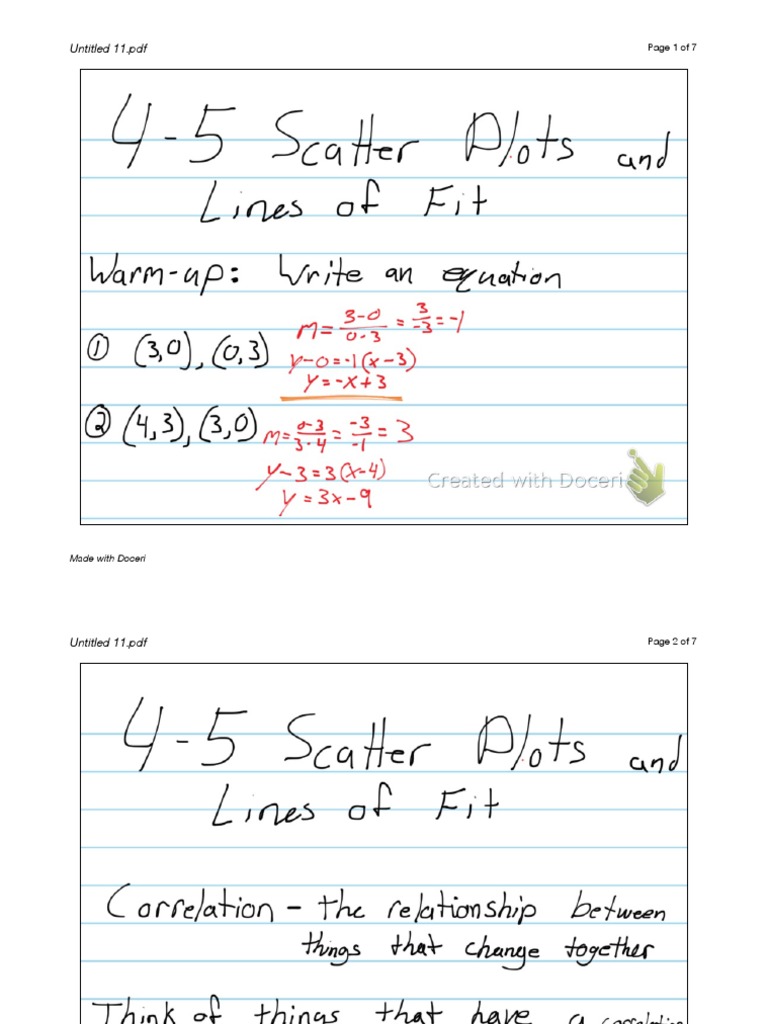 Untitled 11.pdf Page 1 of 7
4-5 Scatter Plots and
Lines of Fit
Warm-up: Write an equation
① (3,0), (0,3) m = 3-0/0-3 = 3/-3 = -1
y-0=-1(x-3)
y=-x+3
② (4,3), (3,0) m = 0-3/3-4 = -3/-1 = 3
y-3=3(x-4)
y=3x-9
Created with Doceri
Made with Doceri
Untitled 11.pdf Page 2 of 7
4-5 Scatter Plots and
Lines of Fit
Correlation - the relationship between
things that change together
Think of things that have a correlation